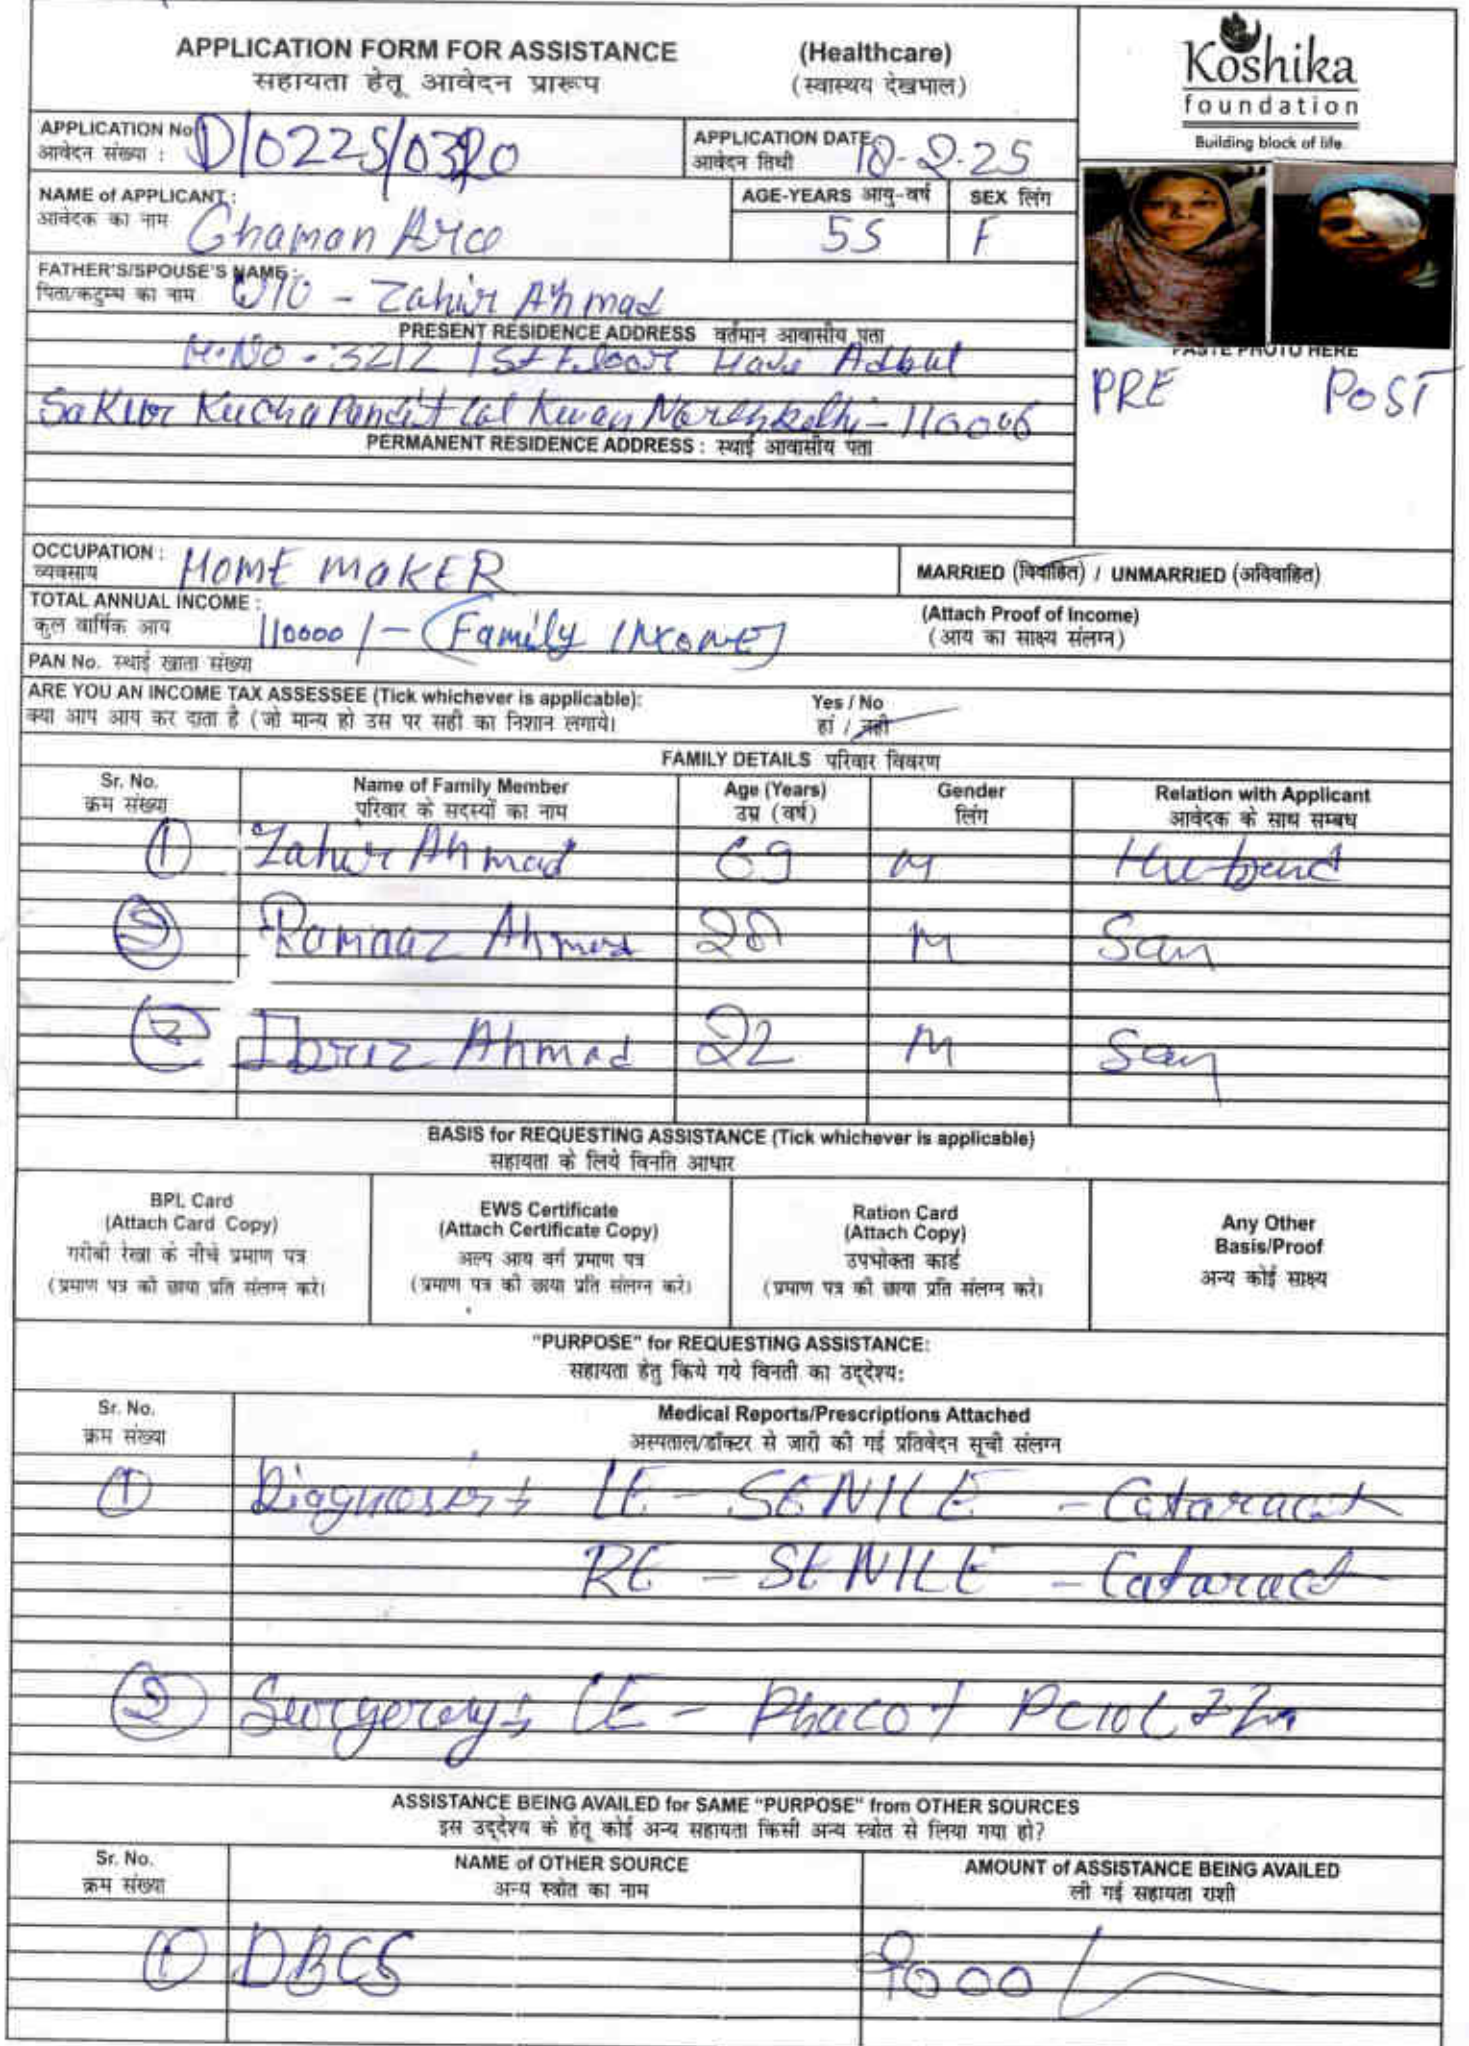 APPLICATION FORM FOR ASSISTANCE (Healthcare)
सहायता हेतू आवेदन प्रारूप (स्वास्थय देखभाल)
Koshika
foundation
Building block of life.
APPLICATION No
आवेदन संख्या : D/0225/0320
APPLICATION DATE
आवेदन तिथी 18-2-25
NAME of APPLICANT :
आवेदक का नाम Chaman Ara
AGE-YEARS आयु-वर्ष 55
SEX लिंग F
FATHER'S/SPOUSE'S NAME :
पिता/कटुम्ब का नाम W/O - Zahir Ahmad
PRESENT RESIDENCE ADDRESS वर्तमान आवासीय पता
H.NO - 3212 1st Floor Adbul
Sakur Kucha Pandit Lal Kuan 110006
PASTE PHOTO HERE
PRE POST
PERMANENT RESIDENCE ADDRESS : स्थाई आवासीय पता
OCCUPATION :
व्यवसाय HOME MAKER
MARRIED (विवाहित) / UNMARRIED (अविवाहित)
TOTAL ANNUAL INCOME :
कुल वार्षिक आय 110000/- (Family INCOME)
(Attach Proof of Income)
(आय का साक्ष्य संलग्न)
PAN No. स्थाई खाता संख्या
ARE YOU AN INCOME TAX ASSESSEE (Tick whichever is applicable): Yes / No
क्या आप आय कर दाता है (जो मान्य हो उस पर सही का निशान लगाये। हां / नहीं
FAMILY DETAILS परिवार विवरण
Sr. No. Name of Family Member Age (Years) Gender Relation with Applicant
क्रम संख्या परिवार के सदस्यों का नाम उम्र (वर्ष) लिंग आवेदक के साथ सम्बध
1 Zahir Ahmad 69 M Husband
2 Ahmad 28 M San
3 Ahmad 22 M San
BASIS for REQUESTING ASSISTANCE (Tick whichever is applicable)
सहायता के लिये विनति आधार
BPL Card
(Attach Card Copy)
गरीबी रेखा के नीचे प्रमाण पत्र
(प्रमाण पत्र की छाया प्रति संलग्न करे।
EWS Certificate
(Attach Certificate Copy)
अल्प आय वर्ग प्रमाण पत्र
(प्रमाण पत्र की छाया प्रति संलग्न करे।
Ration Card
(Attach Copy)
उपभोक्ता कार्ड
(प्रमाण पत्र की छाया प्रति संलग्न करे।
Any Other
Basis/Proof
अन्य कोई साक्ष्य
"PURPOSE" for REQUESTING ASSISTANCE:
सहायता हेतु किये गये विनती का उद्देश्य:
Sr. No. Medical Reports/Prescriptions Attached
क्रम संख्या अस्पताल/डॉक्टर से जारी की गई प्रतिवेदन सूची संलग्न
1 Diagnosis: LE - SENILE - Cataract
RE - SENILE - Cataract
2 Surgerey: LE - Phaco + PCIOL
ASSISTANCE BEING AVAILED for SAME "PURPOSE" from OTHER SOURCES
इस उद्देश्य के हेतू कोई अन्य सहायता किसी अन्य स्त्रोत से लिया गया हो?
Sr. No. NAME of OTHER SOURCE AMOUNT of ASSISTANCE BEING AVAILED
क्रम संख्या अन्य स्त्रोत का नाम ली गई सहायता राशी
1 DBCS